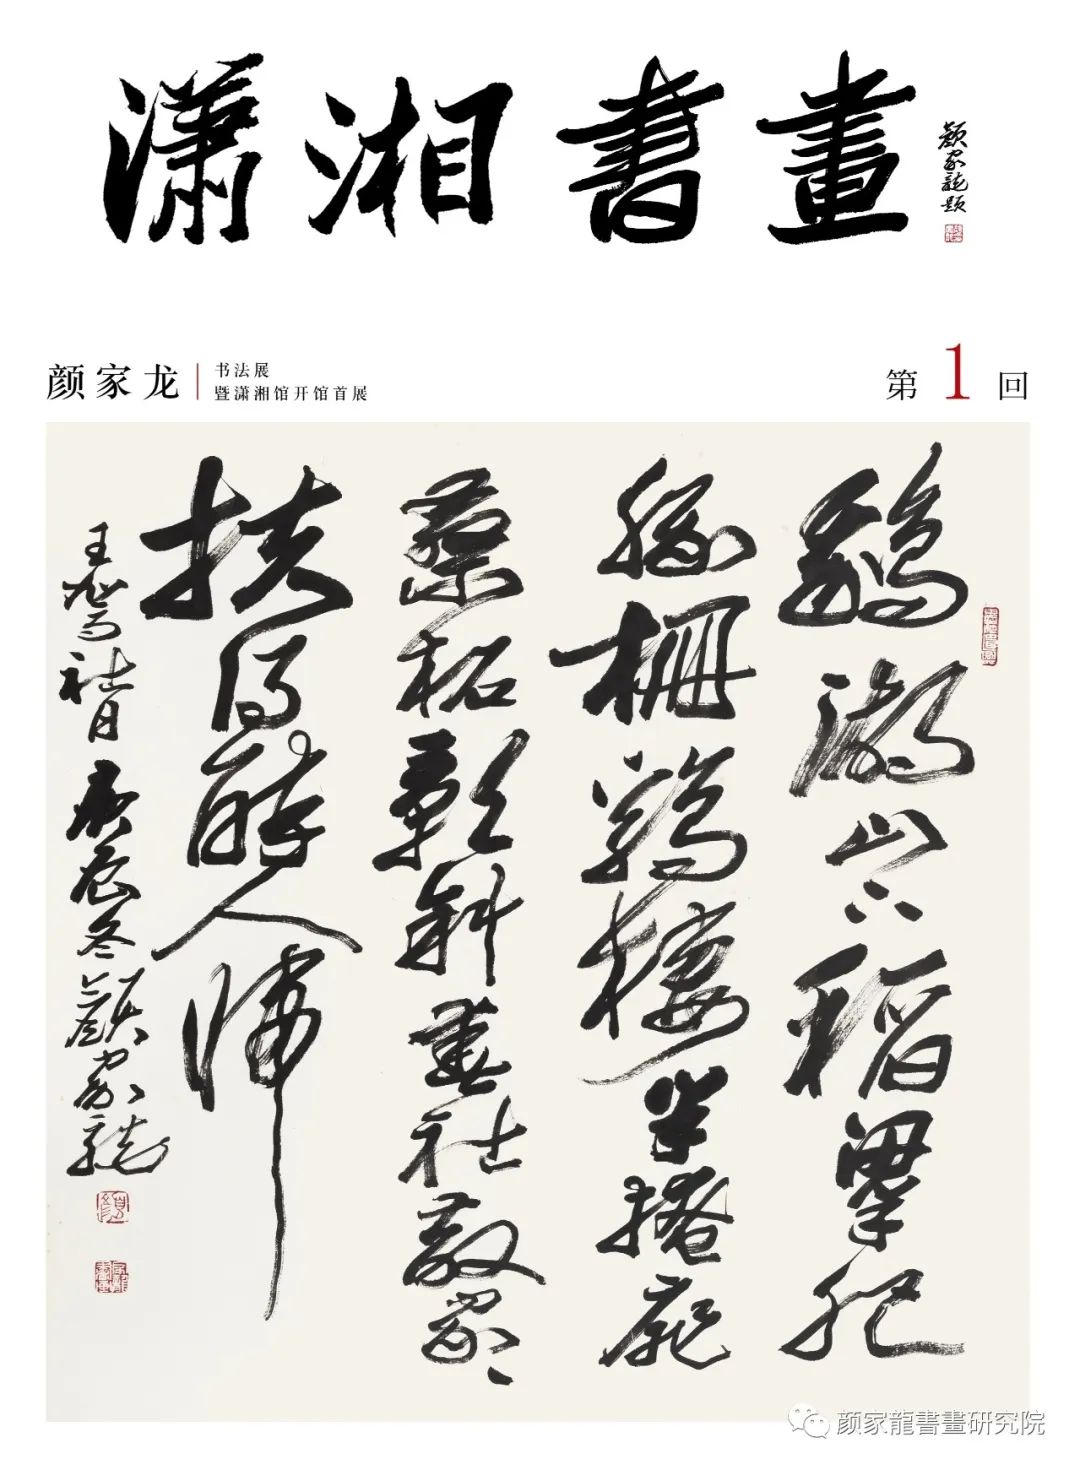 瀟湘書畫
顏家龍題
颜家龙
书法展
暨潇湘馆开馆首展
第1回
鵝湖山下稻粱肥
豚柵鷄棲半掩扉
桑柘影斜春社散家々
扶得醉人歸
王駕社日 庚辰冬 顏家龍
颜家龍書畫研究院